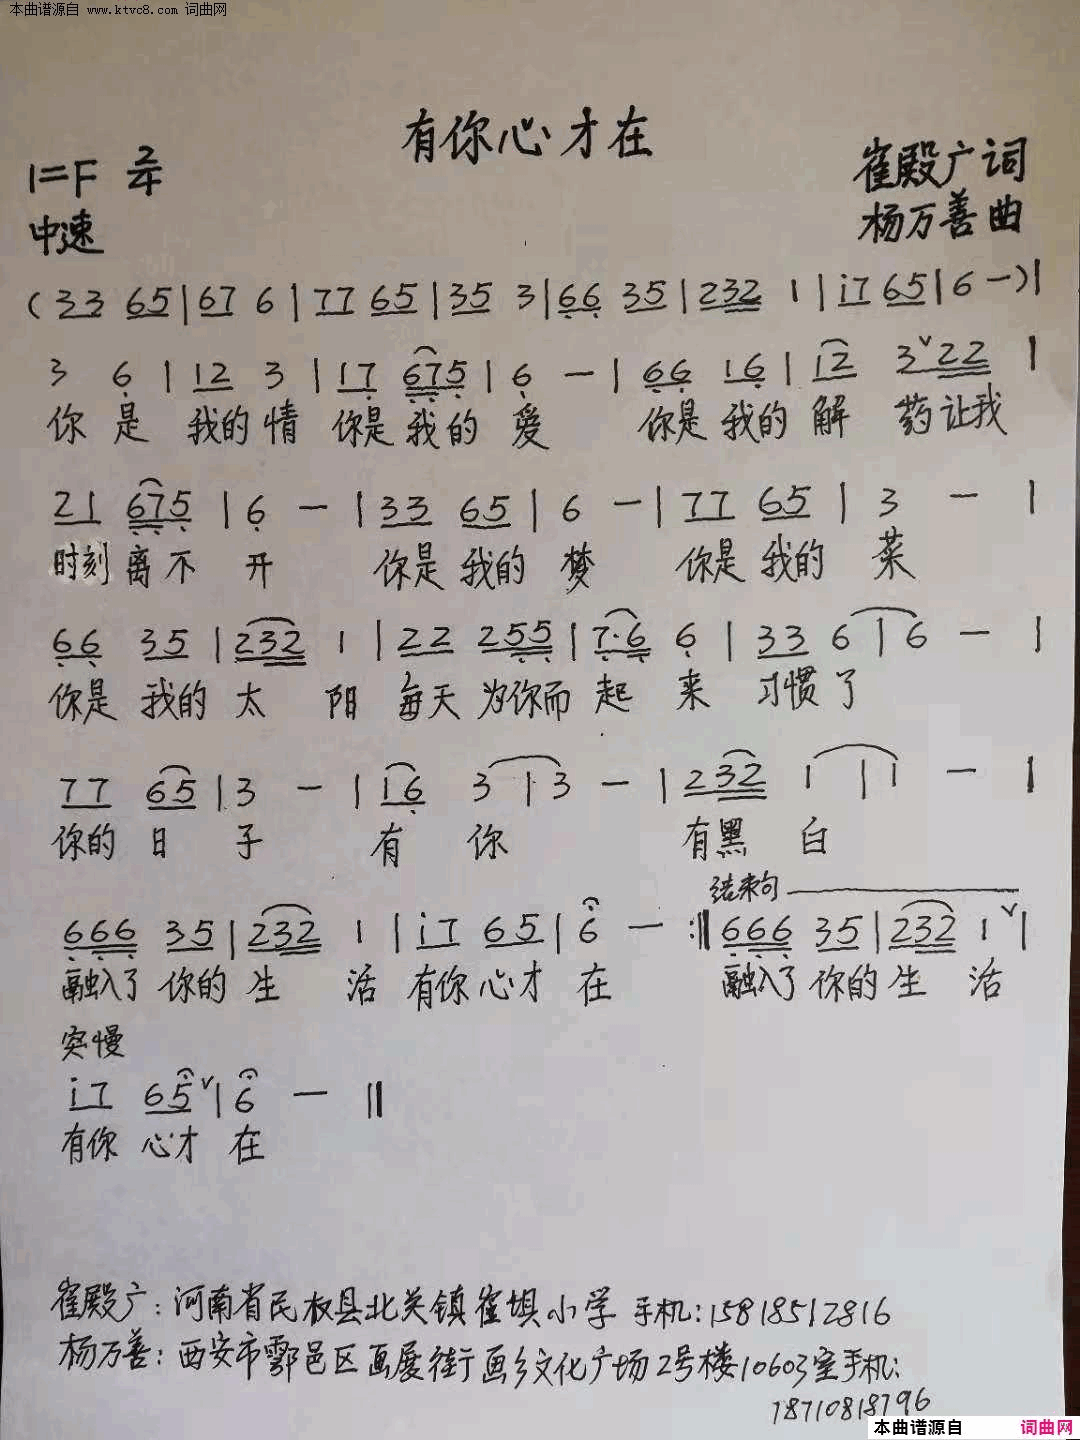 本曲谱源自 www.ktvc8.com 词曲网
有你心才在
1=F 2/4
崔殿广词
中速
杨万善曲
(33 65|67 6|77 65|35 3|66 35|232 1|i7 65|6 -)|
3 6|12 3|17 675|6 -|66 16|12 3ˇ22|
你是 我的情 你是我的 爱 你是我的解 药让我
21 675|6 -|33 65|6 -|77 65|3 -|
时刻离不 开 你是我的梦 你是我的 菜
66 35|232 1|22 255|7·6 6|33 6|6 -|
你是 我的太 阳 每天 为你而 起 来 习惯了
77 65|3 -|16 3|3 -|232 1|1 -|
你的 日 子 有 你 有黑 白
结束句
666 35|232 1|i7 65|6 -:‖666 35|232 1ˇ|
融入了 你的 生 活 有你心才 在 融入了 你的生 活
突慢
i7 65ˇ|6 -‖
有你 心才 在
崔殿广:河南省民权县北关镇崔坝小学 手机:15818512816
杨万善:西安市鄠邑区画展街画乡文化广场2号楼10603室手机:
18710818796
本曲谱源自 词曲网